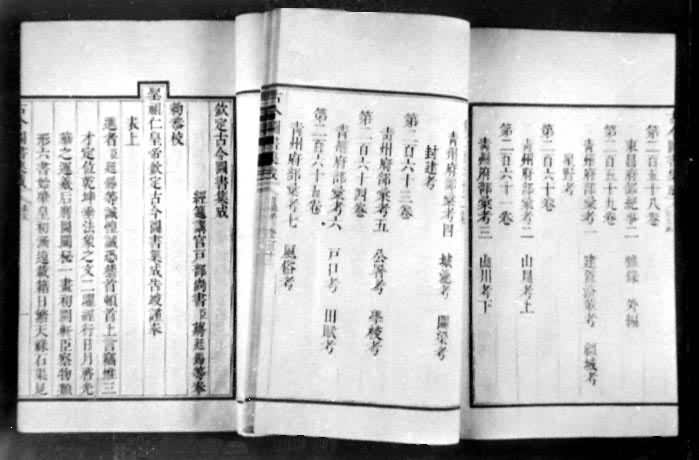 第二百五十八卷
東昌府部紀事二 雜錄 外編
第二百五十九卷
青州府部彙考一 建置沿革考 疆域考
星野考
第二百六十卷
青州府部彙考二 山川考上
第二百六十一卷
青州府部彙考三 山川考下
青州府部彙考四 城池考 關梁考
封建考
第二百六十三卷
青州府部彙考五 公署考 學校考
第二百六十四卷
青州府部彙考六 戶口考 田賦考
第二百六十五卷
青州府部彙考七 風俗考
古今圖書集成
欽定古今圖書集成
經筵講官戶部尚書臣蔣廷錫等奉
勅恭校
聖祖仁皇帝欽定古今圖書集成告竣謹奉
表上
進者臣廷錫等誠惶誠恐稽首頓首上言竊惟三
才定位乾坤垂法象之文二曜經行日月啓光
華之運后圖闡秘一畫初開軒臣察物類
形六書始肇皇初漸遠載籍日繁天祿石渠見
古今圖書集成